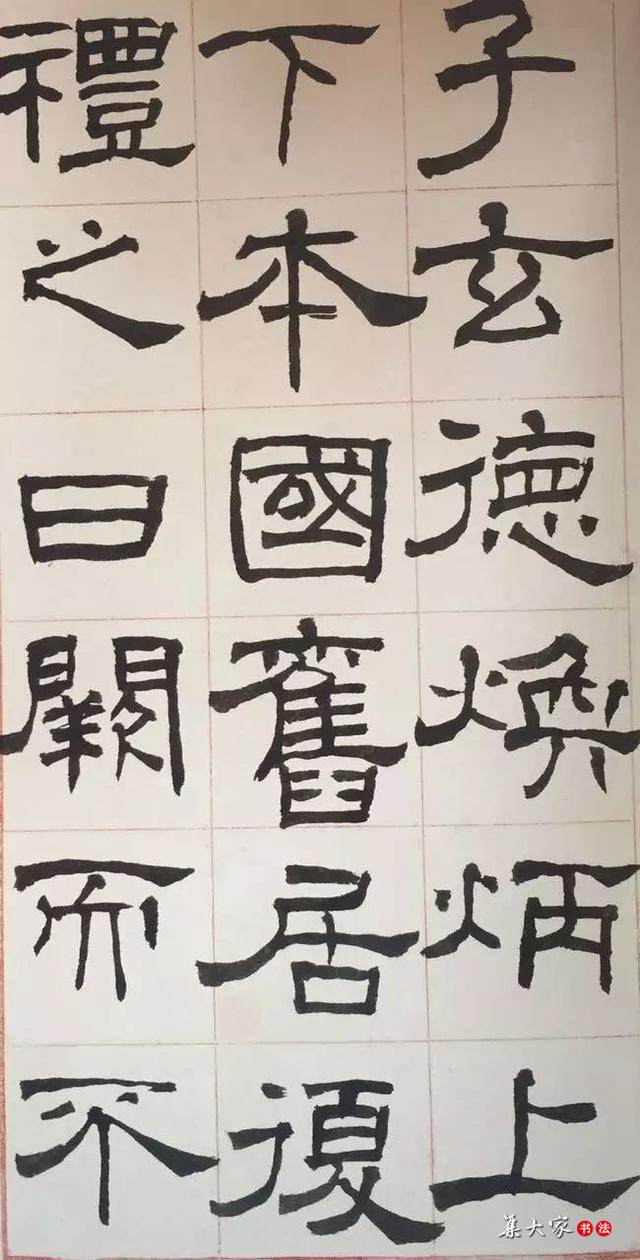 子玄德煥炳上
下本國舊居復
禮之日闕而不
集大家书法